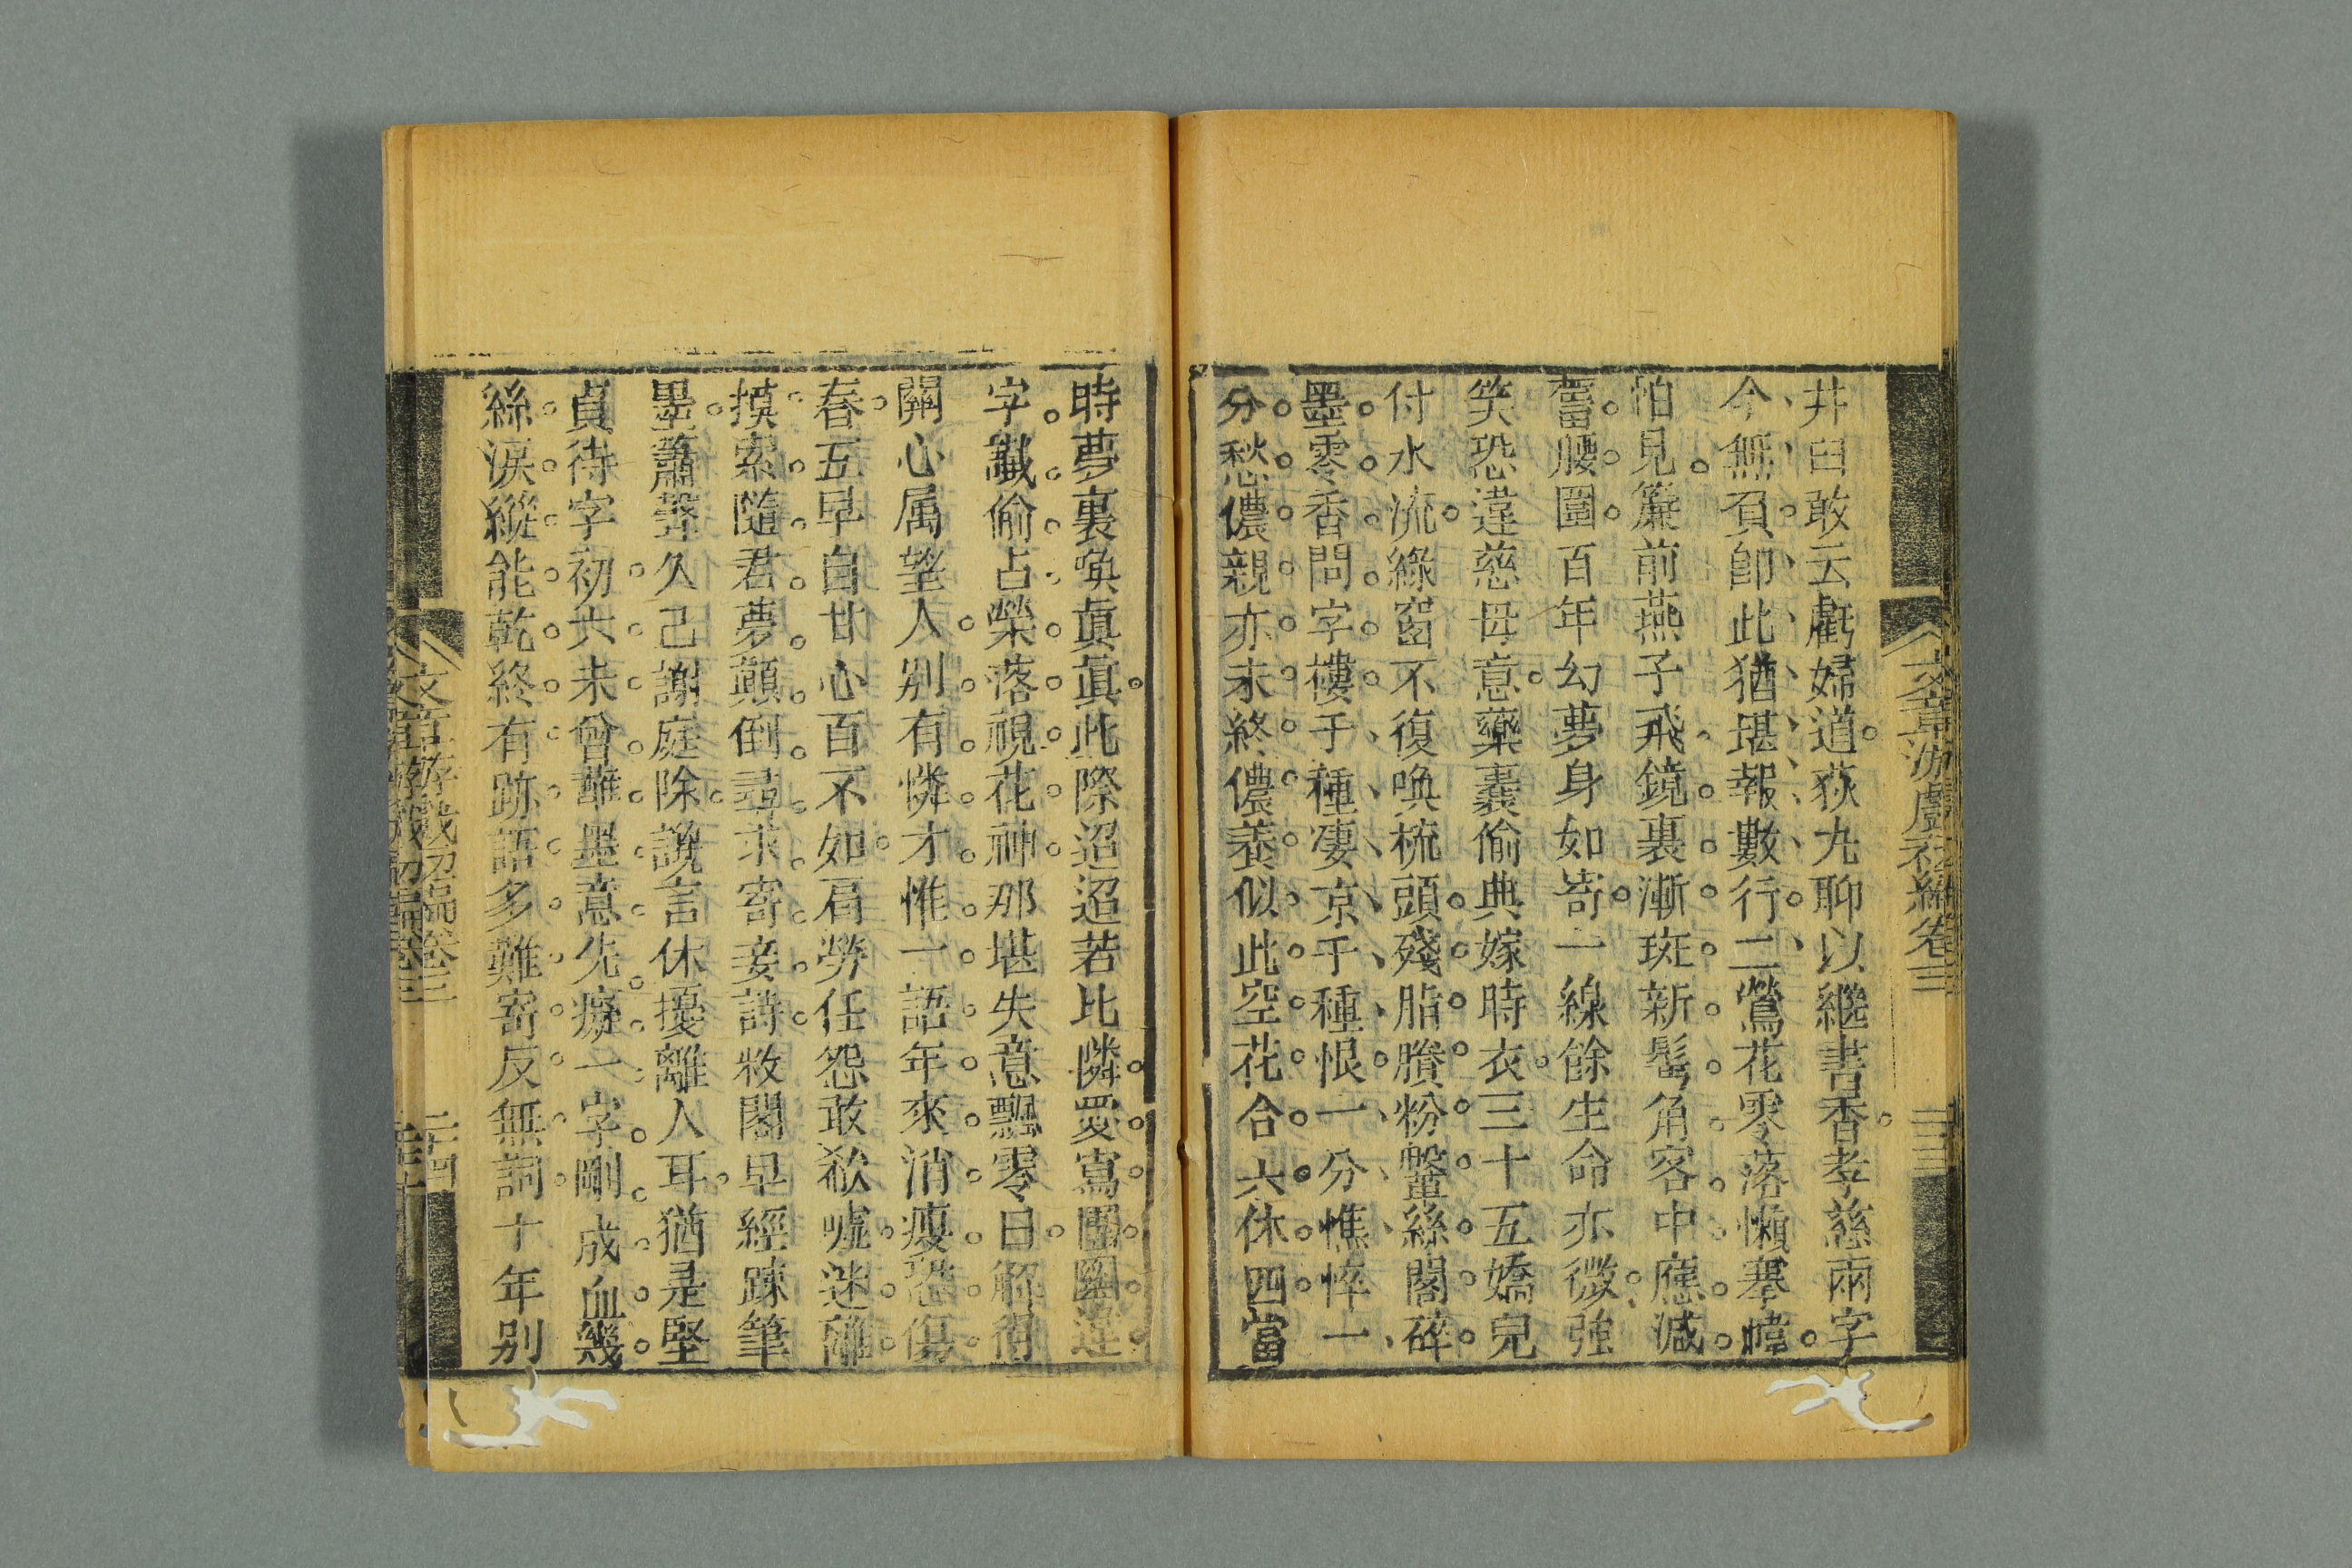 井臼敢云虧婦道荻丸聊以繼書香孝慈兩字
今無負卽此猶堪報數行二鶯花零落懶搴幃
怕見簾前燕子飛鏡裏漸斑新髩角客中應減
舊腰圍百年幻夢身如寄一線餘生命亦微強
笑恐違慈母意藥囊偷典嫁時衣三十五嬌兒
付水流綠窗不復喚梳頭殘脂賸粉鼇絲閣碎
墨零香問字樓千種凄凉千種恨一分憔悴一
分愁儂親亦未終儂養似此空花合六休四當
時夢裏喚眞眞此際迢迢若比隣愛寫團圞違
字讖偷占榮落視花神那堪失意飄零日解得
關心属望人别有憐才惟一語年來消瘦恐傷
春五早自甘心百不如肩勞任怨敢欷噓迷離
摸索隨君夢顚倒尋求寄妾詩妝閣早經踈筆
墨簫聲久已謝庭除說言休擾離人耳猶是堅
貞待字初六未曾蘸墨意先癡一字剛成血幾
絲淚縱能乾終有跡語多難寄反無詞十年别
文章游戲初編卷三 二十三
文章游戲初編卷三 二十四